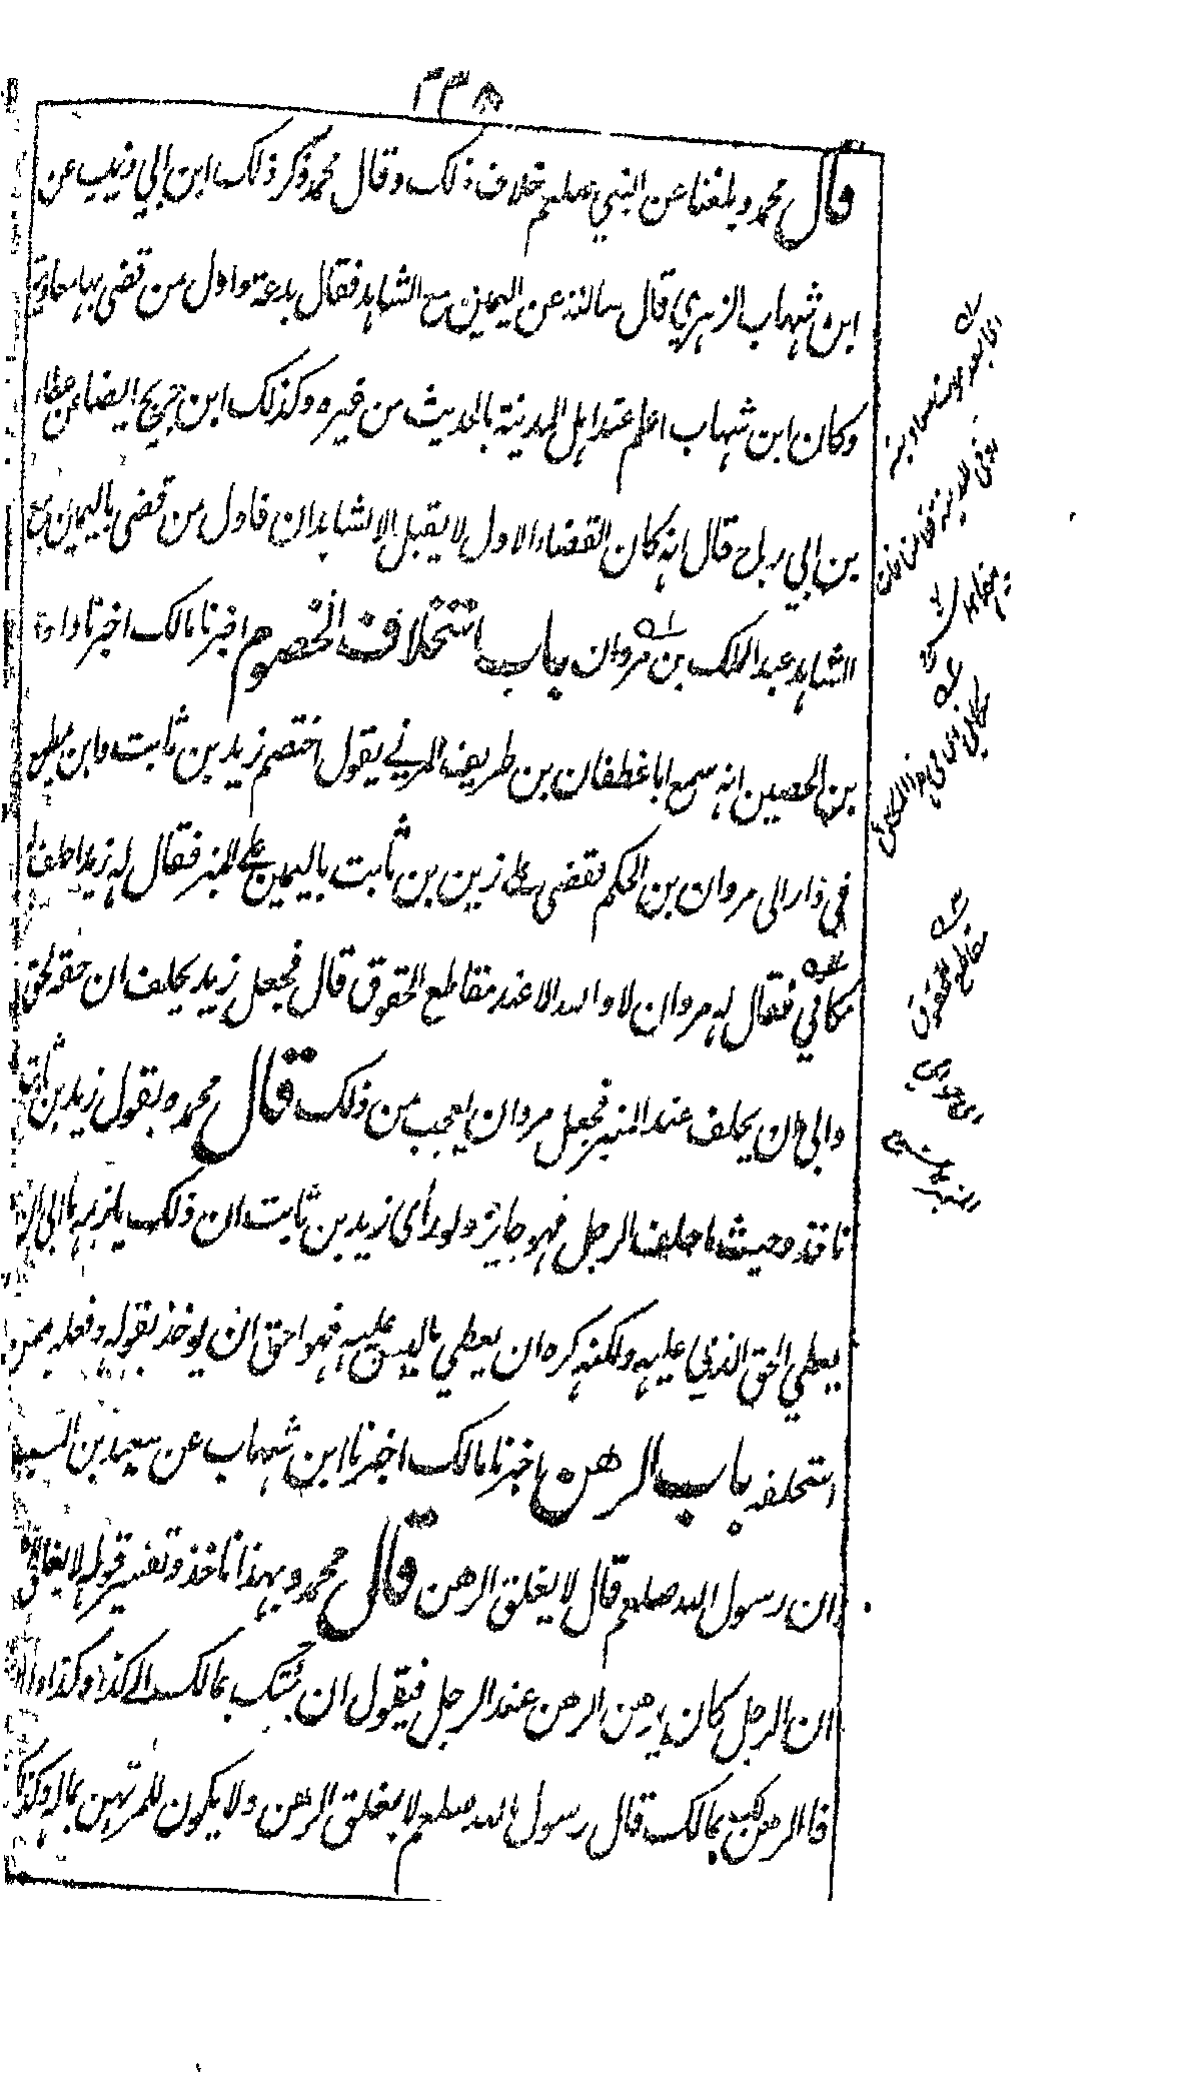 ٣٣٨
قال محمد وبلغنا عن النبي صلعم خلاف ذلك وقال محمد ذكر ذلك ابن ابي ذئيب عن
ابن شهاب الزهري قال سالته عن اليمين مع الشاهد فقال بدعة واول من قضى بها معاوية
وكان ابن شهاب اعلم عند اهل المدينة بالحديث من غيره وكذلك ابن جريج ايضا عن عطاء
بن ابي رباح قال انه كان القضاء الاول لا يقبل الا شاهدان فاول من قضى باليمين مع
الشاهد عبد الملك بن مروان باب استحلاف الخصوم اخبرنا مالك اخبرنا داود
بن الحصين انه سمع ابا غطفان بن طريف المري يقول اختصم زيد بن ثابت وابن مطيع
في دار الى مروان بن الحكم فقضى على زيد بن ثابت باليمين على المنبر فقال له زيد احلف
مكاني فقال له مروان لا والله الا عند مقاطع الحقوق قال فجعل زيد يحلف ان حقه لحق
وابى ان يحلف عند المنبر فجعل مروان يعجب من ذلك قال محمد وبقول زيد بن ثابت
ناخذ وحيث ما حلف الرجل فهو جايز ولو راى زيد بن ثابت ان ذلك يلزمه ما ابى ان
يعطي الحق الذي عليه ولكنه كره ان يعطي ما ليس عليه فهو احق ان يوخذ بقوله وفعله ممن
استحلفه باب الرهن اخبرنا مالك اخبرنا ابن شهاب عن سعيد بن المسيب
ان رسول الله صلعم قال لا يغلق الرهن قال محمد وبهذا ناخذ وتفسير قوله لا يغلق
ان الرجل كان يرهن الرهن عند الرجل فيقول ان جئتك بمالك الى كذا وكذا والا
فالرهن لك بمالك قال رسول الله صلعم لا يغلق الرهن ولا يكون للمرتهن بماله وكذا
مقاطع الحقوق